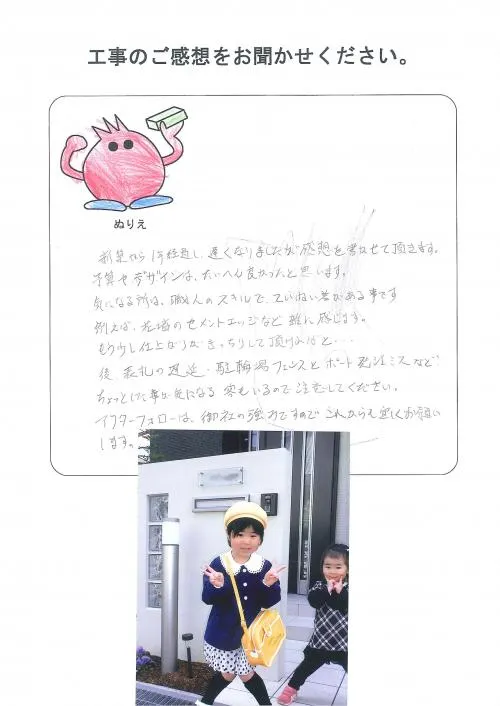 工事のご感想をお聞かせください。
ぬりえ
新築から1年経過し、遅くなりましたが感想を書かせて頂きます。
予算やデザインは、たいへん良かったと思います。
気になる所は、職人のスキルで、ていねい差がある事です
例えば、花壇のセメントエッジなど雑に感じます。
もう少し仕上がりがきっちりして頂ければと・・・
後、表札の遅延・駐輪場フェンスとポート発注ミスなど
ちょっとした事が気になる 客もいるので注意してください。
アフターフォローは、御社の強みですので これからも宜しくお願い
します。